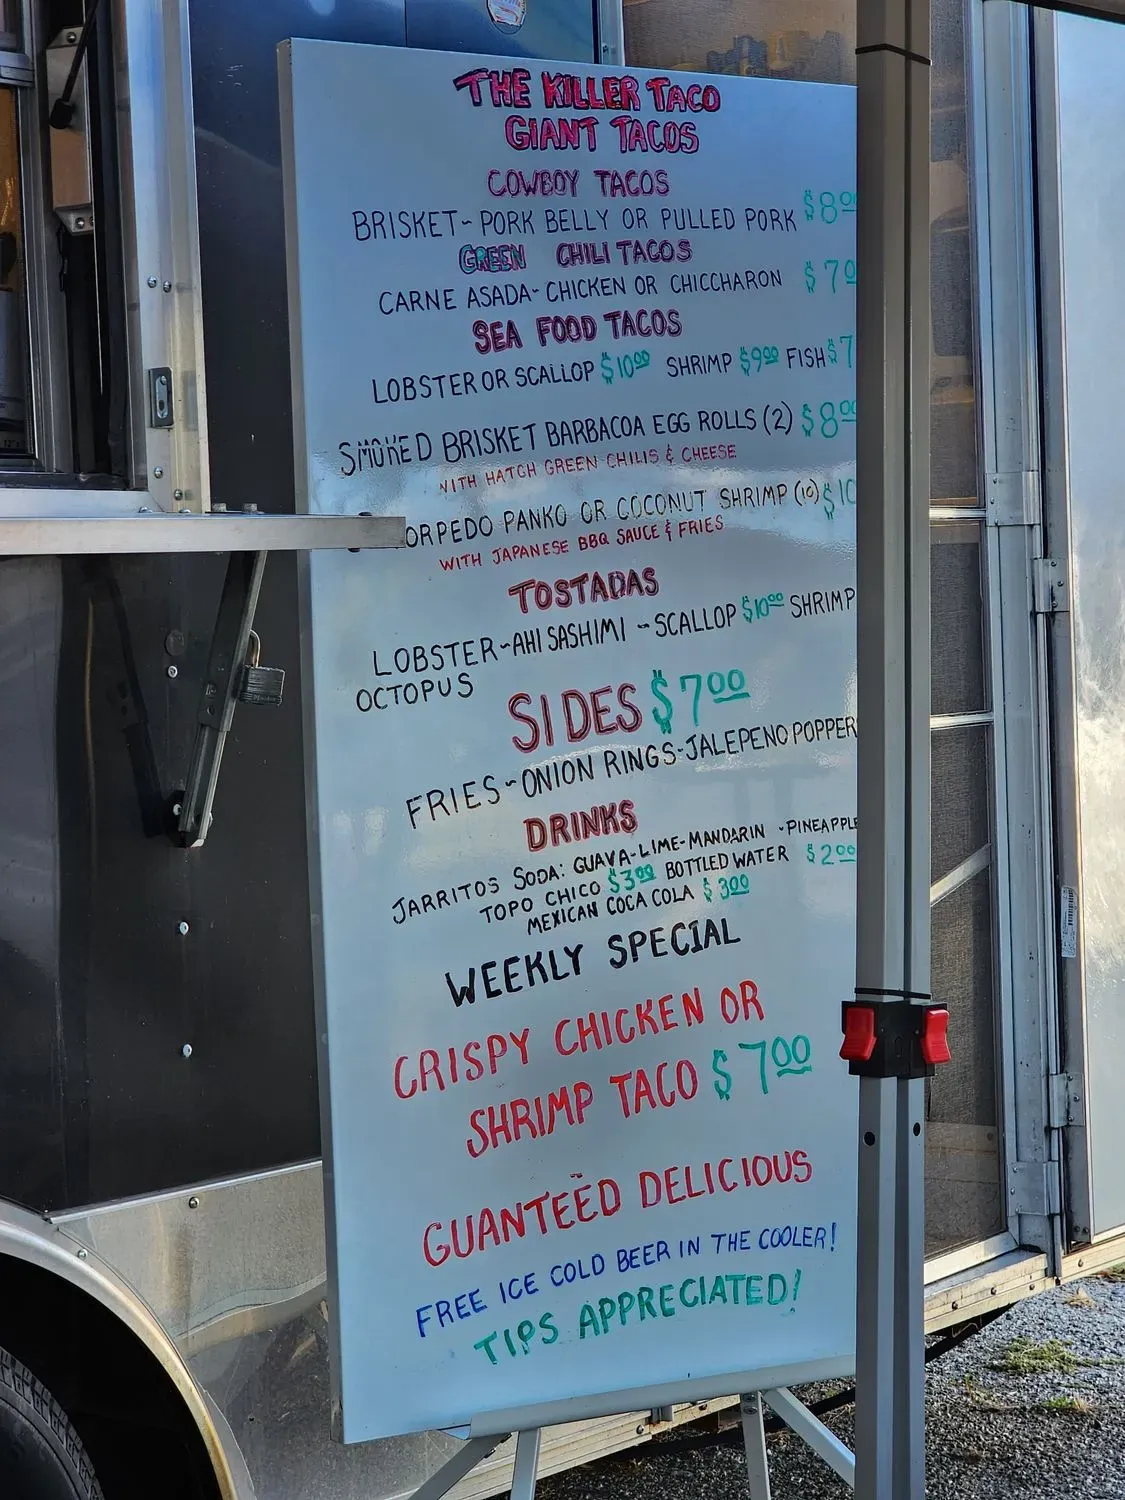 THE KILLER TACO
GIANT TACOS
COWBOY TACOS
BRISKET~ PORK BELLY OR PULLED PORK $8.00
GREEN CHILI TACOS
CARNE ASADA~ CHICKEN OR CHICCHARON $7.0
SEA FOOD TACOS
LOBSTER OR SCALLOP $10.00 SHRIMP $9.00 FISH $7
SMOKED BRISKET BARBACOA EGG ROLLS (2) $8.00
WITH HATCH GREEN CHILIS & CHEESE
ORPEDO PANKO OR COCONUT SHRIMP (10) $10
WITH JAPANESE BBQ SAUCE & FRIES
TOSTADAS
LOBSTER~AHI SASHIMI ~SCALLOP $10.00 SHRIMP
OCTOPUS
SIDES $7.00
FRIES~ONION RINGS~JALEPENO POPPER
DRINKS
JARRITOS SODA: GUAVA-LIME-MANDARIN -PINEAPPLE
TOPO CHICO $3.00 BOTTLED WATER $2.00
MEXICAN COCA COLA $3.00
WEEKLY SPECIAL
CRISPY CHICKEN OR
SHRIMP TACO $7.00
GUANTEED DELICIOUS
FREE ICE COLD BEER IN THE COOLER!
TIPS APPRECIATED!